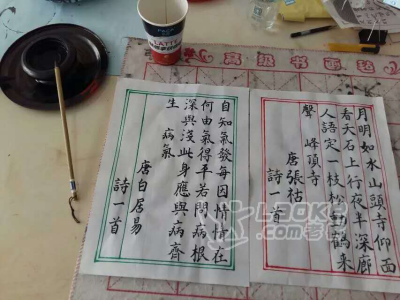 高级书画毡
LATTE
月明如水山頭寺仰面
看天石上行夜半深廊
人語定一枝松動鶴來
聲 峰頂寺
唐張祜
詩一首
自知氣發每因情情在
何由氣得平若問病根
深與淺此身應與病齊
生 病氣
唐白居易
詩一首